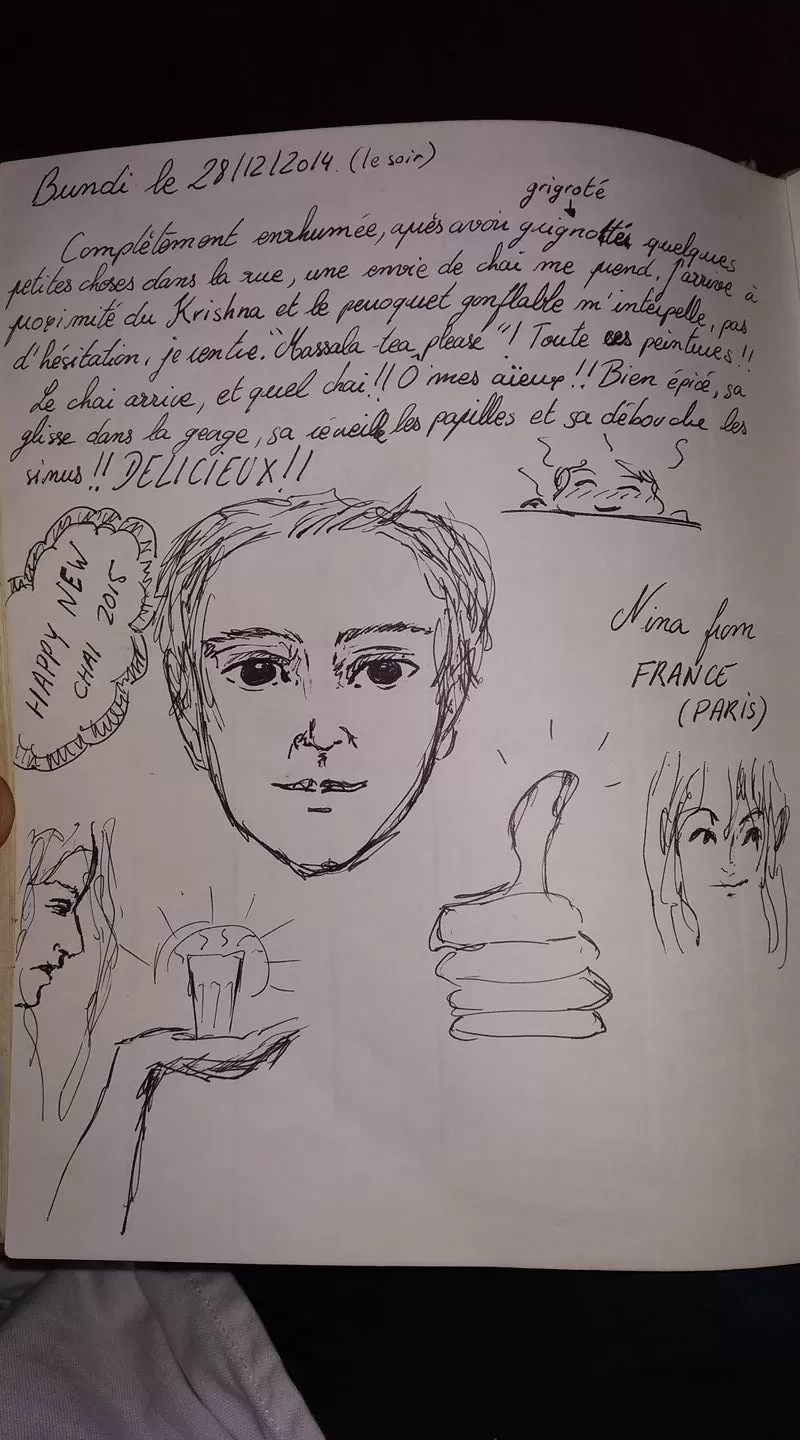 Bundi le 28/12/2014. (le soir)
grigroté
Complètement enrhumée, après avoir quelques
petites choses dans la rue, une envie de chai me prend, j'arrive à
proximité du Krishna et le perroquet gonflable m'interpelle, pas
d'hésitation, je rentre. "Massala tea please"! Toute ces peintures!!
Le chai arrive, et quel chai!! O mes aïeux!! Bien épicé, sa
glisse dans la gorge, sa réveille les papilles et sa débouche les
sinus!! DELICIEUX!!
HAPPY NEW
CHAI 2015
Nina from
FRANCE
(PARIS)